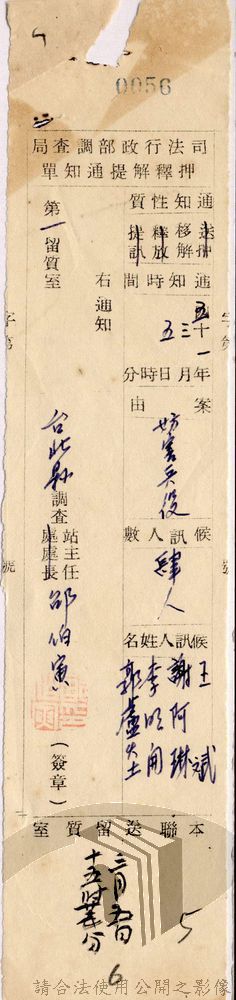 0056
司法行政部調查局
押釋解提通知單
通知性質
送押 移解 釋放 提訊
通知時間
五十一年三月五日時分
案由
妨害兵役
候訊人數
肆人
候訊人姓名
王 斌
謝阿琳
李明開
郭盧火土
右通知
第一留質室
台北縣調查站主任
處處長
邵伯寅
（簽章）
字第
號
本聯送留質室
三月五日
十五時 分
5
6
請合法使用公開之影像